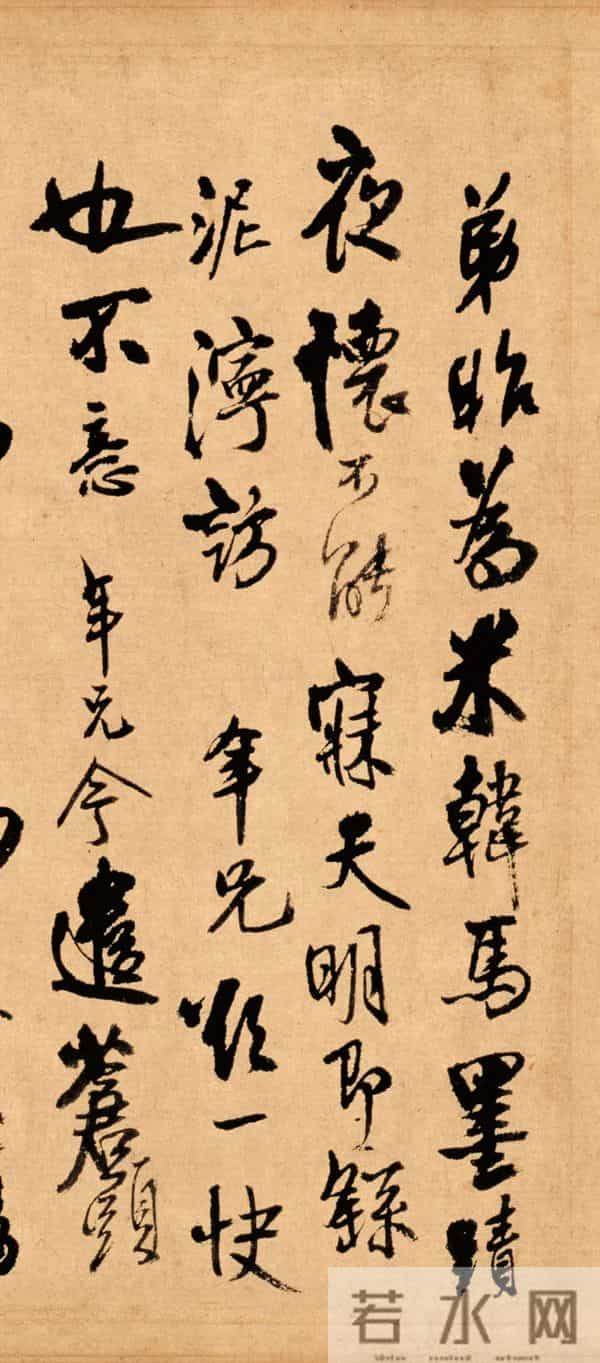 弟昨為米韓馬墨蹟
夜懷不能寐天明即繇
泥濘訪 年兄一快
也不意 年兄今遣蒼頭
若水网